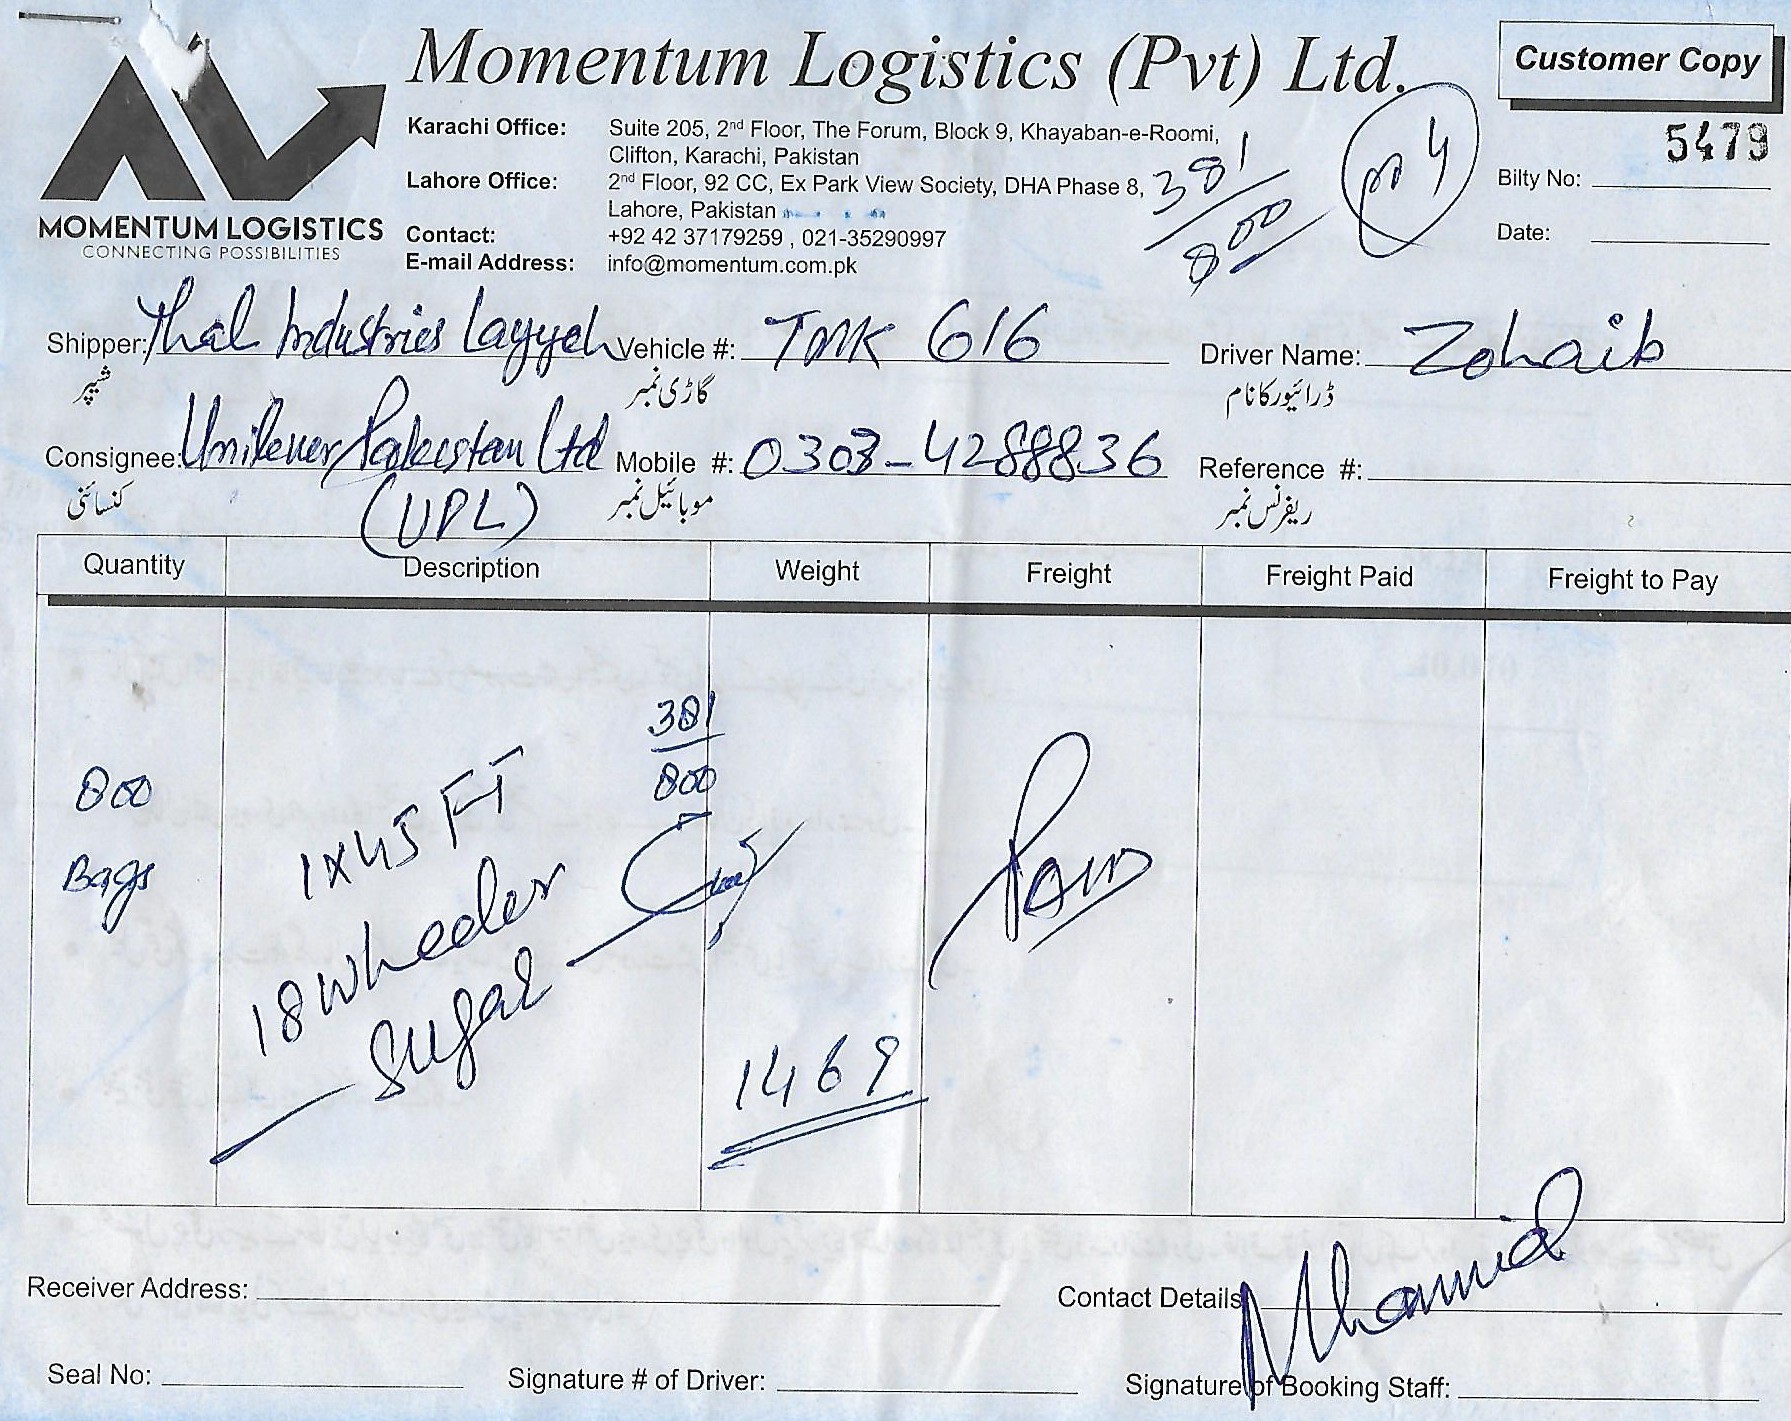 Momentum Logistics (Pvt) Ltd.
Customer Copy
MOMENTUM LOGISTICS
CONNECTING POSSIBILITIES
Karachi Office: Suite 205, 2nd Floor, The Forum, Block 9, Khayaban-e-Roomi,
Clifton, Karachi, Pakistan
Lahore Office: 2nd Floor, 92 CC, Ex Park View Society, DHA Phase 8,
Lahore, Pakistan
Contact: +92 42 37179259 , 021-35290997
E-mail Address: info@momentum.com.pk
381
800
4
5479
Bilty No:
Date:
Shipper: Thal Industries Layyah Vehicle #: TMK 616 Driver Name: Zohaib
شپر گاڑی نمبر ڈرائیور کا نام
Consignee: Unilever Pakistan Ltd Mobile #: 0303-4288836 Reference #:
(UPL)
کنسائنی موبائیل نمبر ریفرنس نمبر
Quantity Description Weight Freight Freight Paid Freight to Pay
381
800
800
Bags
1x45 FT
18 wheeler
Sugar
1469
Receiver Address: Contact Details:
Seal No: Signature # of Driver: Signature of Booking Staff: